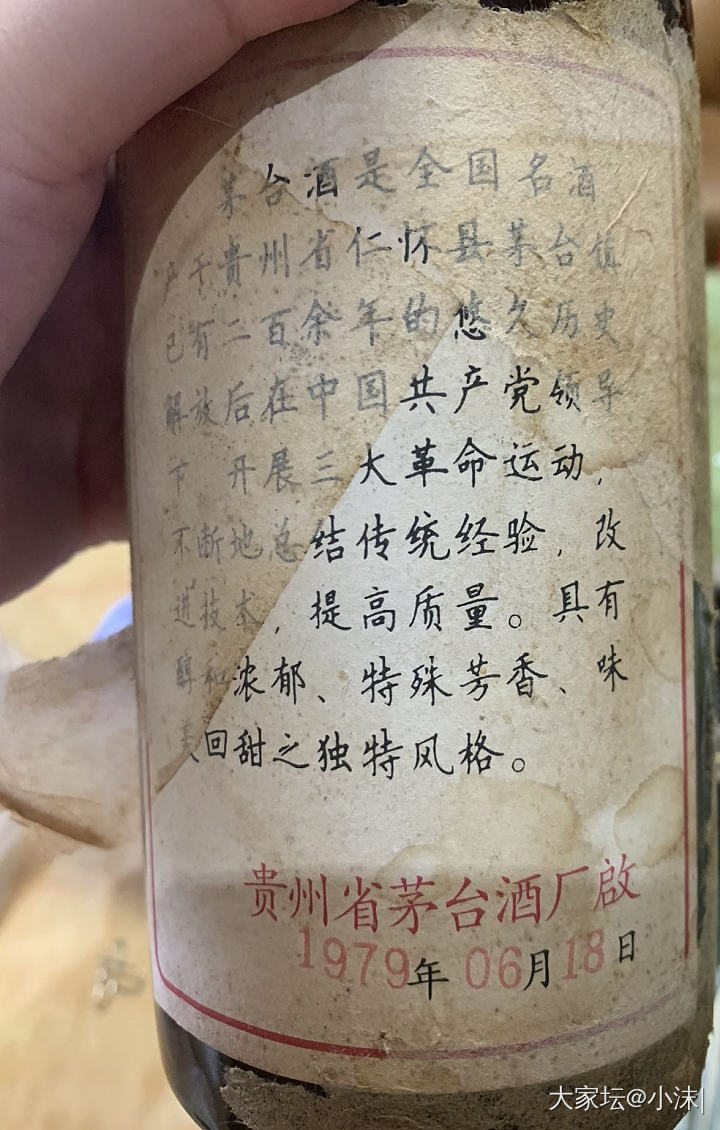 茅台酒是全国名酒
产于贵州省仁怀县茅台镇
已有二百余年的悠久历史
解放后在中国共产党领导
下 开展三大革命运动，
不断地总结传统经验，改
进技术，提高质量。具有
醇和浓郁、特殊芳香、味
美回甜之独特风格。
贵州省茅台酒厂啟
1979年06月18日
大家坛@小沫